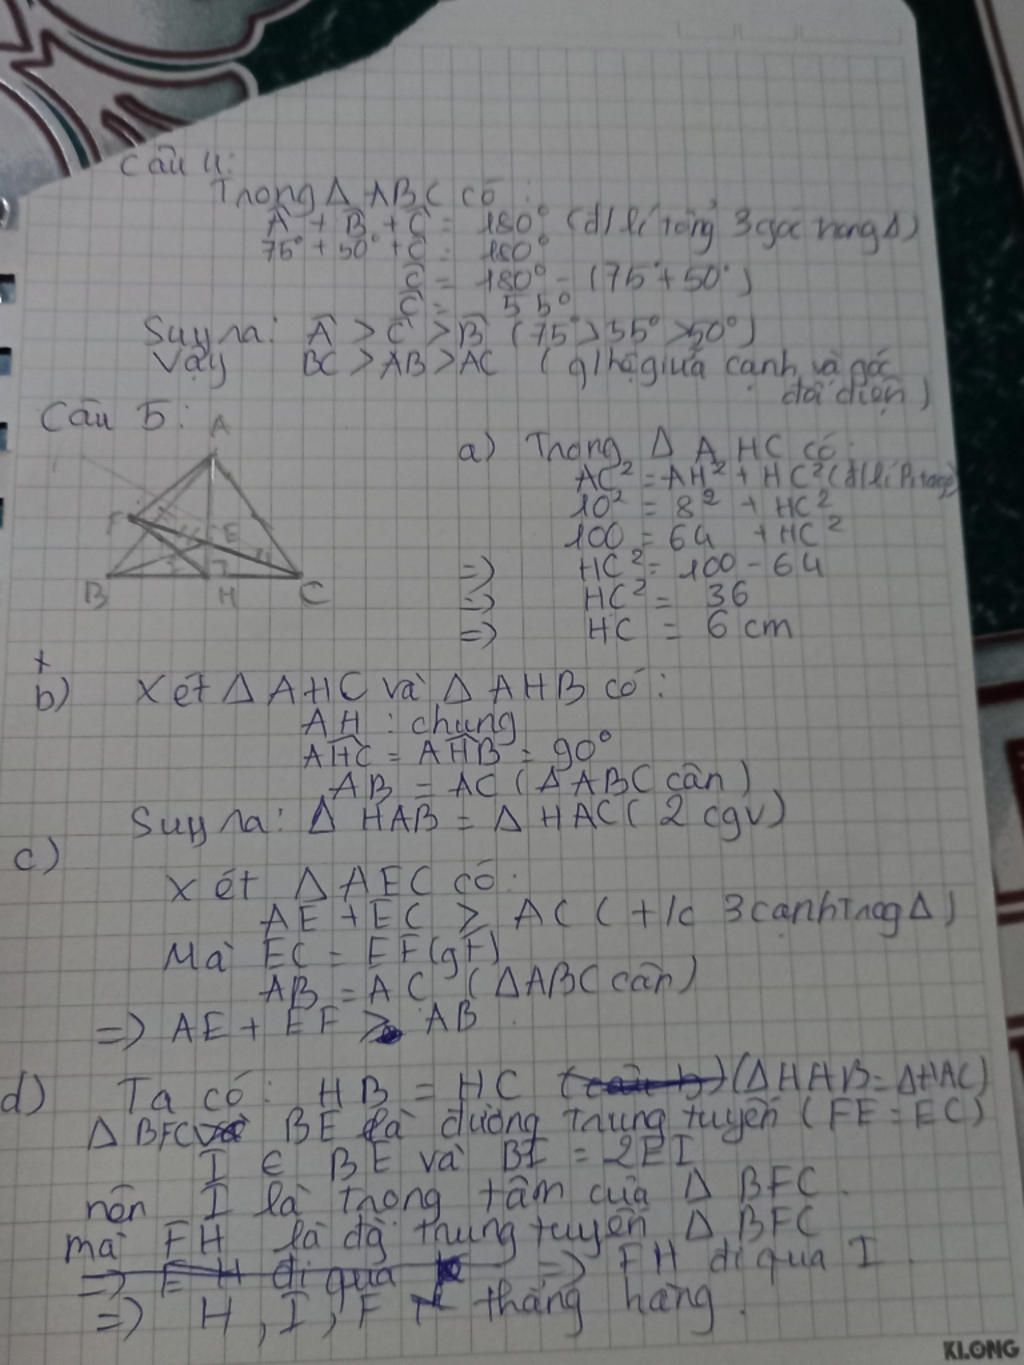 Câu 4:
Trong Δ ABC có :
Â + B̂ + Ĉ = 180° (đ/lí tổng 3 góc trong Δ)
75° + 50° + Ĉ = 180°
Ĉ = 180° - (75° + 50°)
Ĉ = 55°
Suy ra: Â > Ĉ > B̂ (75° > 55° > 50°)
Vậy BC > AB > AC (q/hệ giữa cạnh và góc
đối diện)
Câu 5:
A
F
E
B
H
C
a) Trong Δ AHC có:
AC² = AH² + HC² (đ/lí Pitago)
10² = 8² + HC²
100 = 64 + HC²
=> HC² = 100 - 64
=> HC² = 36
=> HC = 6 cm
b) Xét Δ AHC và Δ AHB có :
AH : chung
AHC = AHB = 90°
AB = AC (ΔABC cân)
Suy ra: Δ HAB = Δ HAC (2 cgv)
c)
Xét Δ AEC có:
AE + EC > AC (+/c 3 cạnh trog Δ)
Mà EC = EF (gt)
AB = AC (ΔABC cân)
=> AE + EF > AB
d) Ta có: HB = HC (câu b) (ΔHAB = ΔHAC)
Δ BFC BE là đường trung tuyến (FE = EC)
I ∈ BE và BI = 2EI
nên I là trọng tâm của Δ BFC.
mà FH là đg trung tuyến Δ BFC
=> đi qua => FH đi qua I.
=> H, I, F thẳng hàng.
KLONG